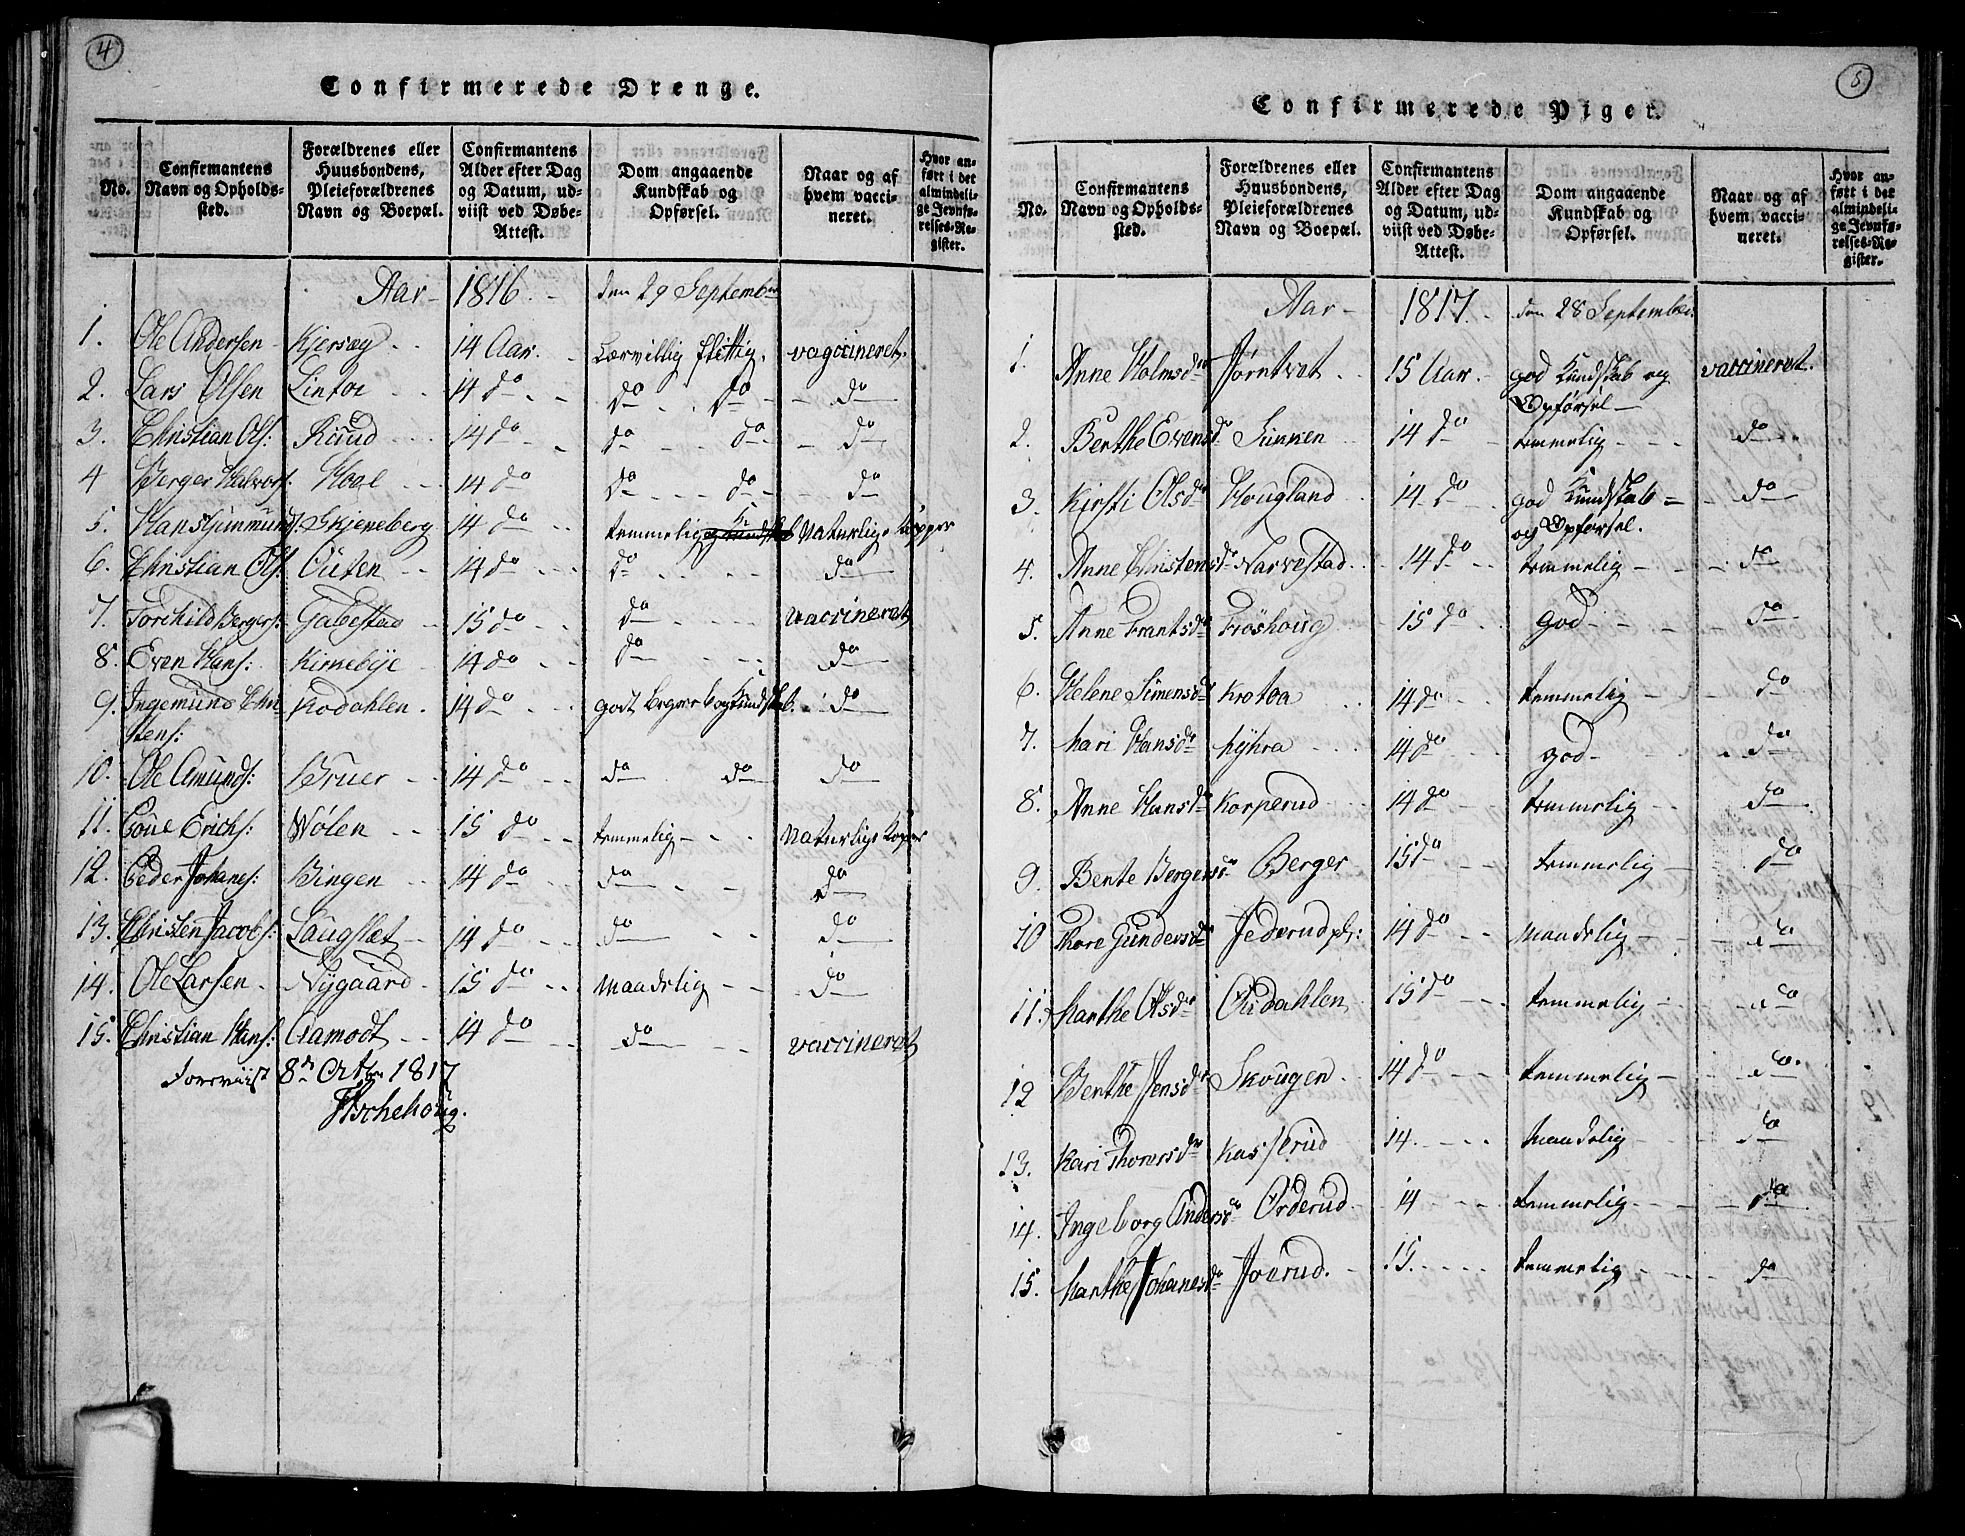 4
Confirmerede Drenge.
No.
Confirmantens Navn og Opholds-sted.
Forældrenes eller Huusbondens, Pleieforældrenes Navn og Boepæl.
Confirmantens Alder efter Dag og Datum, ud-viist ved Døbe-Attest.
Dom angaaende Kundskab og Opførsel.
Naar og af hvem vacci-neret.
Hvor an-ført i det almindeli-ge Jevnfø-relses-Re-gister.
Aar - 1816 den 29 September
1. Ole Andersen Kjersøg 14 Aar. Lærvillig flittig. vaccineret.
2. Lars Olsen Lintoe 14 do do do do
3. Christian Ols: Ruud 14 do do do do
4 Berger Halvors: Hoel 14 do do do do
5. Hans Gummunds: Skjeneberg 14 do temmelig Naturlige Kopper
6. Christian Ols: Outen 14 do do do
7. Torchild Bergers: Gabestad 15 do do vaccineret
8. Even Hans: Kirnebye 14 do do do
9. Ingemund Chri- Kodahlen. 14 do godt Begreb og Kundskab. do
stens:
10. Ole Amunds: Bruer 14 do do do do
11. Poul Erichs: Wølen 15 do temmelig Naturlige Koper
12. Peder Johans: Bingen 14 do do do
13. Christen Jacobs: Laugslet 14 do do do
14. Ole Larsen Nygaard 15 do Maadelig do
15. Christian Hans: Aamodt 14 do do vaccineret
Foreviist 8de Octbr 1817
Aschehoug.
5
Confirmerede Piger.
No.
Confirmantens Navn og Opholds-sted.
Forældrenes eller Huusbondens, Pleieforældrenes Navn og Boepæl.
Confirmantens Alder efter Dag og Datum, ud-viist ved Døbe-Attest.
Dom angaaende Kundskab og Opførsel.
Naar og af hvem vacci-neret.
Hvor an-ført i det almindeli-ge Jevnfø-relses-Re-gister.
Aar - 1817. den 28 September.
1. Anne Holmsdr Jørntvet 15 Aar. god Kundskab og vaccineret.
Opførsel
2. Berthe Evensdr Sünken 14 do temmelig do
3. Kirsti Olsdr Hougland 14 do god Kundskab do
og Opførsel.
4. Anne Christensdr Narvestad 14 do temmelig do
5. Anne Frantsdr Frøshoug 15 do God do
6. Helene Simensdr Krotoa 14 do temmelig do
7. Mari Hansdr Myhra 14 do god do
8. Anne Hansdr Korperud 14 do temmelig do
9. Bente Bergersdr Berger 15 do temmelig do
10 Thore Gundersdr Jederud pl: 14 do Maadelig do
11. Marthe Olsdr Ousdahlen 15 do temmelig do
12 Berthe Jensdr Skougen 14 do temmelig do.
13. Kari Thorersdr Kasserud 14. Maadelig do
14. Ingeborg Andersdr Orderud 14 temmelig do
15. Marthe Johanesdr Joerud. 15. temmelig do